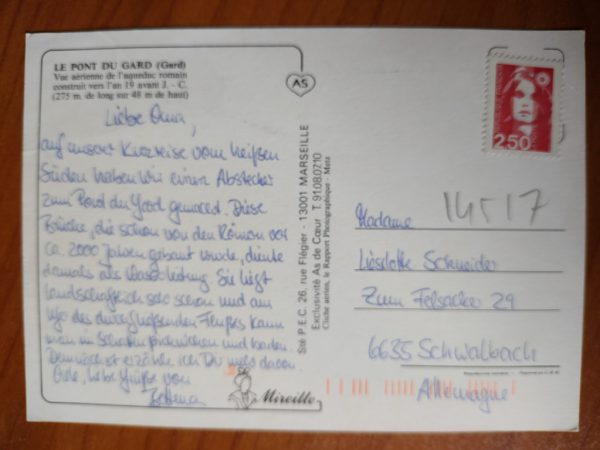 LE PONT DU GARD (Gard)
Vue aérienne de l'aqueduc romain
construit vers l'an 19 avant J. - C.
(275 m. de long sur 48 m de haut)
AS
Liebe Oma,
auf unserer Kurzreise vom heißen
Süden haben wir einen Abstecher
zum Pond du Gard gemacht. Diese
Brücke, die schon von den Römern vor
ca. 2000 Jahren gebaut wurde, diente
damals als Wasserleitung. Sie liegt
landschaftlich sehr schön und am
Ufer des durchfließenden Flußes kann
man im Schatten picknicken und baden.
Demnächst erzähle ich Dir mehr davon
liebe Grüße von
Bettina
Mireille
Sté P.E.C. 26, rue Flégier - 13001 MARSEILLE
Exclusivité As de Cœur T. 91.08.07.10
Cliché aérien, le Rapport Photographique - Metz
2,50
14517
Madame
Lieselotte Schneider
Zum Felsacker 29
6635 Schwalbach
Allemagne